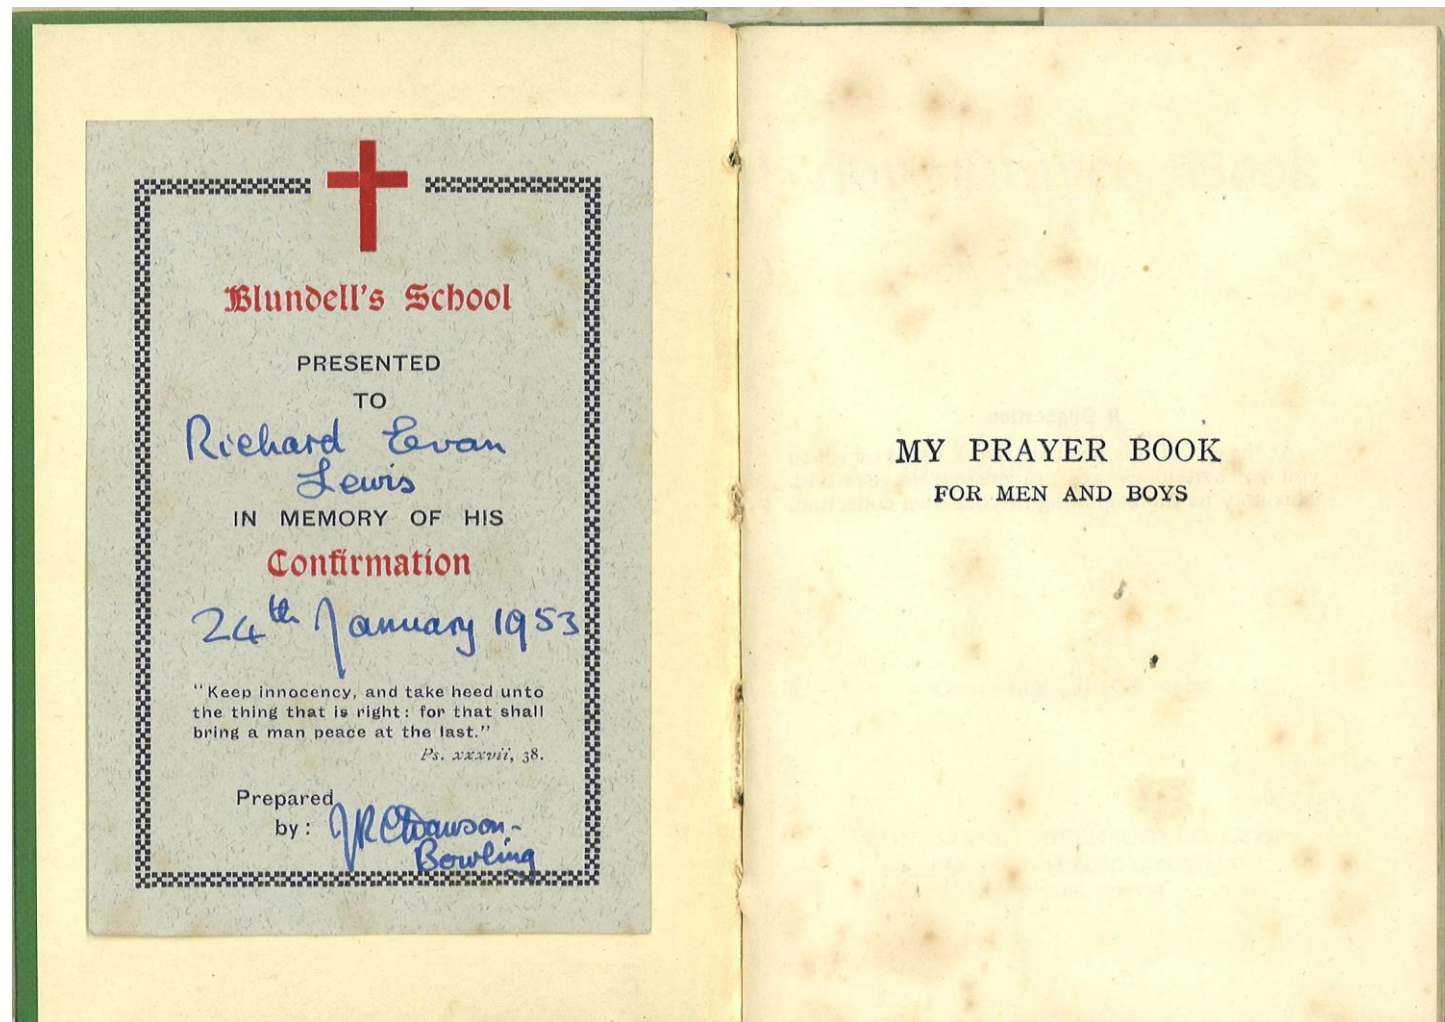 Blundell's School
PRESENTED
TO
Richard Evan
Lewis
IN MEMORY OF HIS
Confirmation
24th January 1953
"Keep innocency, and take heed unto
the thing that is right: for that shall
bring a man peace at the last."
Ps. xxxvii, 38.
Prepared
by: Dawson-
Bowling
MY PRAYER BOOK
FOR MEN AND BOYS
A Suggestion